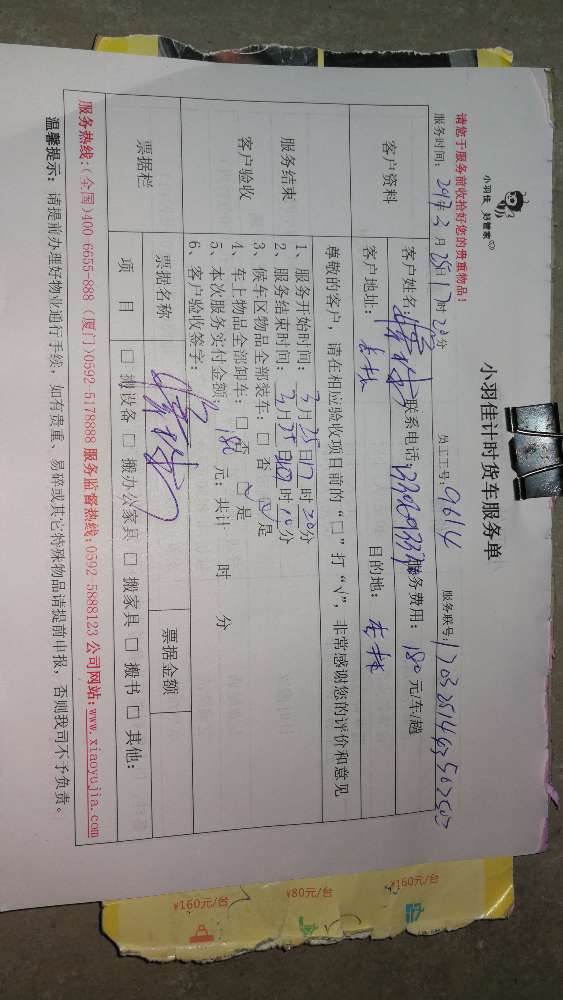 小羽佳 好管家
小羽佳计时货车服务单
请您于服务前收拾好您的贵重物品!
服务时间: 年 3 月 25 日 17 时 20 分 员工工号: 9614 服务联号:
客户资料
客户姓名: 联系电话: 服务费用: 180 元/车/趟
客户地址: 目的地:
服务结束
客户验收
尊敬的客户,请在相应验收项目前的“□”打“√”,非常感谢您的评价和意见
1、服务开始时间: 3 月 25 日 17 时 20 分
2、服务结束时间: 3 月 25 日 时 10 分
3、候车区物品全部装车:□ 否 是
4、车上物品全部卸车:□ 否 是
5、本次服务实付金额: 180 元;共计 时 分
6、客户验收签字:
票据栏
票据名称 票据金额
项 目 □ 搬设备 □ 搬办公家具 □ 搬家具 □ 搬书 □ 其他:
服务热线:(全国)400-6655-888 (厦门)0592-5178888 服务监督热线:0592-5888123 公司网站:www.xiaoyujia.com
温馨提示: 请提前办理好物业通行手续,如有贵重、易碎或其它特殊物品请提前申报,否则我司不予负责。
¥160元/台
¥80元/台
¥160元/台